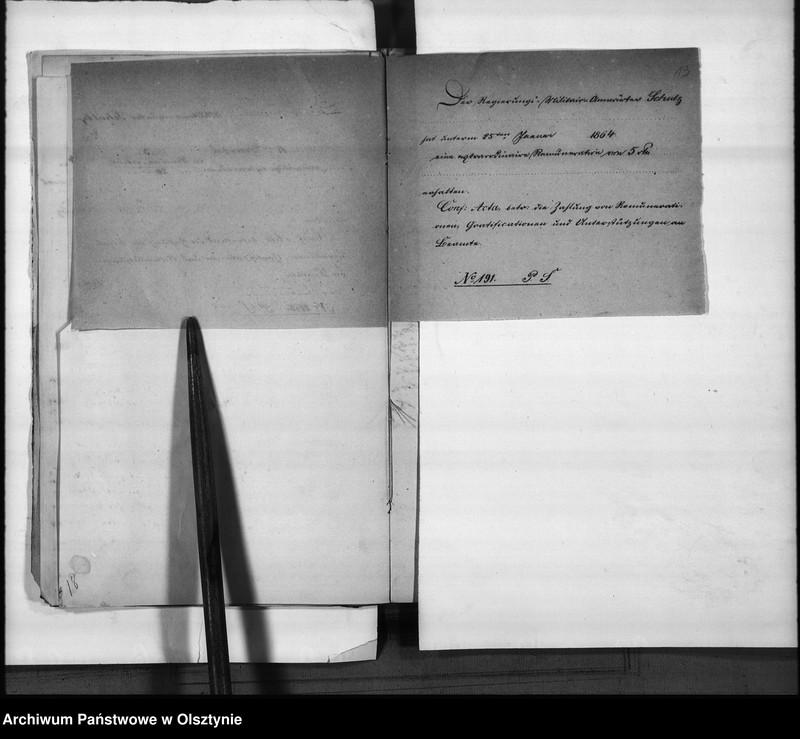 Der Regierungs-Militair-Anwärter Schulz
hat unterm 25ten Januar 1864
eine extraordinaire Remuneration von 5
erhalten.
Conf: Acta betr: die Zahlung von Remunerati-
onen, Gratificationen und Unterstützungen an
Beamte.
No 191. P S
18
Archiwum Państwowe w Olsztynie